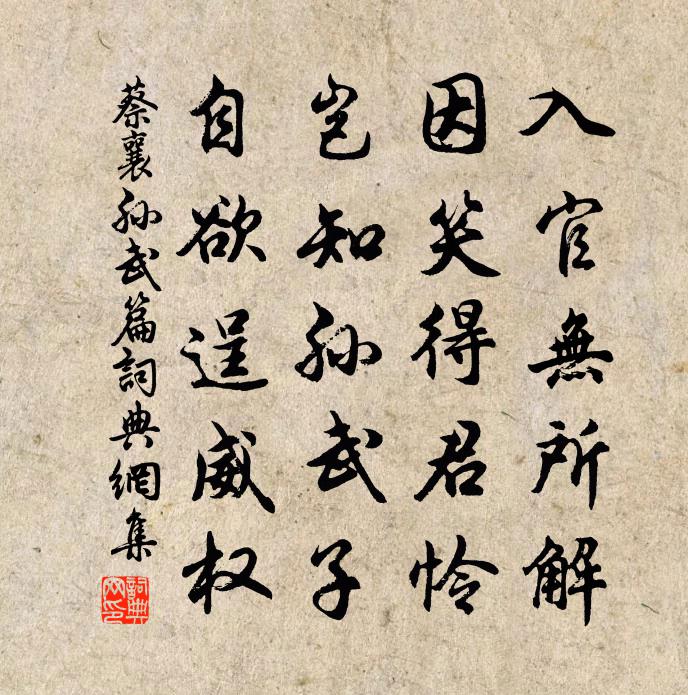 入官無所解
因笑得君怜
岂知孙武子
自欲逞威权
蔡襄孙武篇詞典網集
詞典
网印